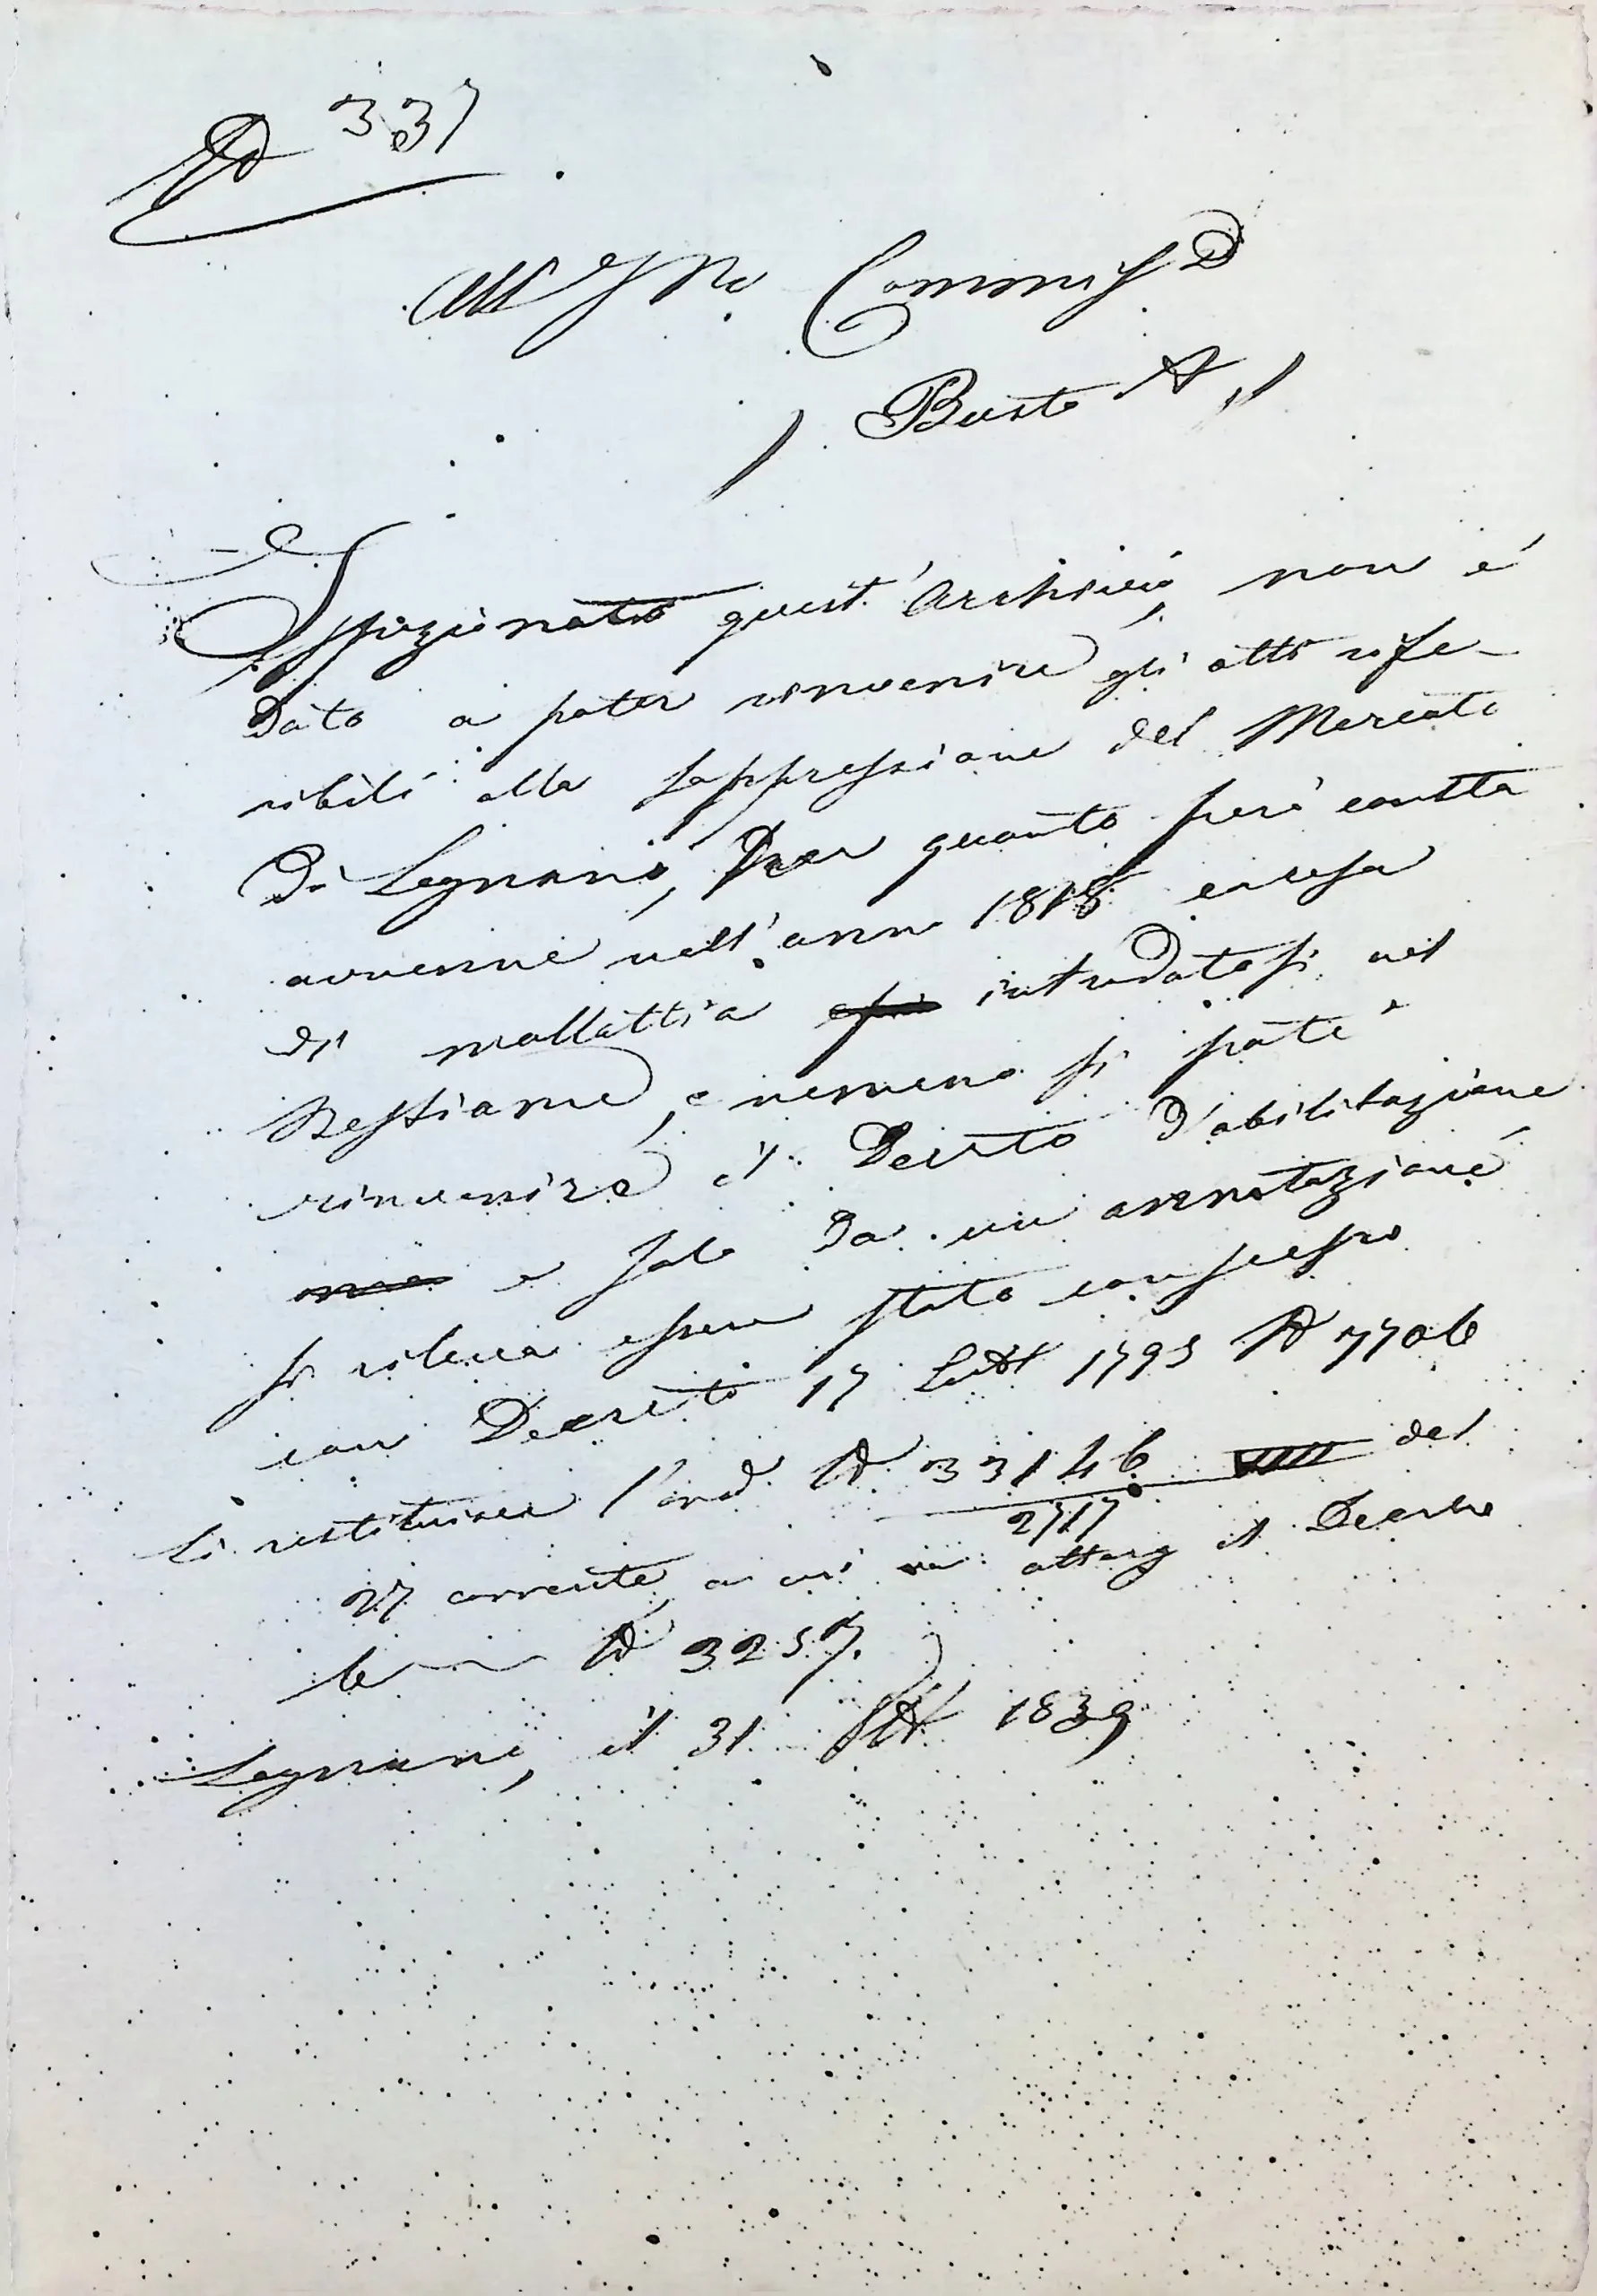 N° 337
All' I. R. Commiss°
Busto A
Ispezionato quest'Archivio, non è
dato a poter rinvenire gli atti rife-
ribili alla soppressione del Mercato
di Legnano, Per quanto però consta
avvenne nell'anno 1818 causa
di mallattia intrudotasi nel
Bestiame, e nemeno si potè
rinvenire il Decreto d'abilitazione
e solo da un annotazione
si rileva essere stato concesso
con Decreto 17 1795 N° 7706
Si restituisce l'ord. N° 33146 del
2717
27 corrente, a cui va atterg il Decreto
N° 3257.
Legnano, il 31 1839